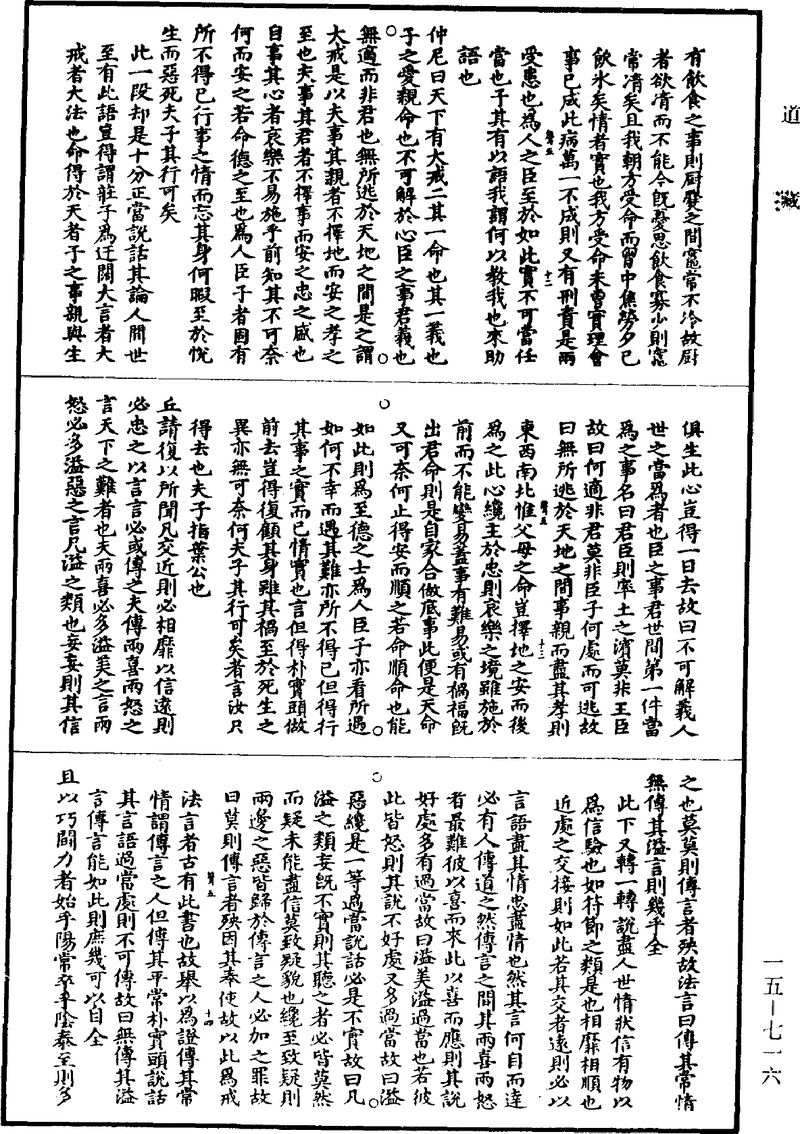 道藏
有飲食之事則厨爨之間竈常不冷故厨
者欲凊而不能今既憂思飲食寡少則竈
常凊矣且我朝方受命而胷中焦勞夕已
飲氷矣情者實也我方受命未曽實理會
事已成此病萬一不成則又有刑責是兩
受患也為人之臣至於如此實不可當任
當也子其有以語我謂何以教我也來助
語也
仲尼曰天下有大戒二其一命也其一義也
子之愛親命也不可解於心臣之事君義也
無適而非君也無所逃於天地之間是之謂
大戒是以夫事其親者不擇地而安之孝之
至也夫事其君者不擇事而安之忠之盛也
自事其心者哀樂不易施乎前知其不可奈
何而安之若命德之至也為人臣子者固有
所不得已行事之情而忘其身何暇至於悅
生而惡死夫子其行可矣
此一段却是十分正當說話其論人間世
至有此語豈得謂莊子為迂闊大言者大
戒者大法也命得於天者子之事親與生
俱生此心豈得一日去故曰不可解義人
世之當為者也臣之事君世間第一件當
為之事名曰君臣則率土之濱莫非王臣
故曰何適非君莫非臣子何處而可逃故
曰無所逃於天地之間事親而盡其孝則
東西南北惟父母之命豈擇地之安而後
為之此心纔主於忠則哀樂之境雖施於
前而不能變易蓋事有難易或有禍福既
出君命則是自家合做底事此便是天命
又可奈何止得安而順之若命順命也能
如此則為至德之士為人臣子亦看所遇
如何不幸而遇其難亦所不得已但得行
其事之實而已情實也言但得朴實頭做
前去豈得復顧其身雖其禍至於死生之
異亦無可奈何夫子其行可矣者言汝只
得去也夫子指葉公也
丘請復以所聞凡交近則必相靡以信遠則
必忠之以言言必或傳之夫傳兩喜兩怒之
言天下之難者也夫兩喜必多溢美之言兩
怒必多溢惡之言凡溢之類也妄妄則其信
之也莫莫則傳言者殃故法言曰傳其常情
無傳其溢言則幾乎全
此下又轉一轉說盡人世情狀信有物以
為信驗也如符節之類是也相靡相順也
近處之交接則如此若其交者遠則必以
言語盡其情忠盡情也然其言何自而達
必有人傳道之然傳言之間其兩喜兩怒
者最難彼以喜而來此以喜而應則其說
好處多有過當故曰溢美溢過當也若彼
此皆怒則其說不好處又多過當故曰溢
惡纔是一等過當說話必是不實故曰凡
溢之類妄既不實則其聽之者必皆莫然
而疑未能盡信莫致疑貌也纔至致疑則
兩邊之惡皆歸於傳言之人必加之罪故
曰莫則傳言者殃因其奉使故以此為戒
法言者古有此書也故舉以為證傳其常
情謂傳言之人但傳其平常朴實頭說話
其言語過當處則不可傳故曰無傳其溢
言傳言能如此則庶幾可以自全
且以巧鬭力者始乎陽常卒乎陰泰至則多
一五－七一六